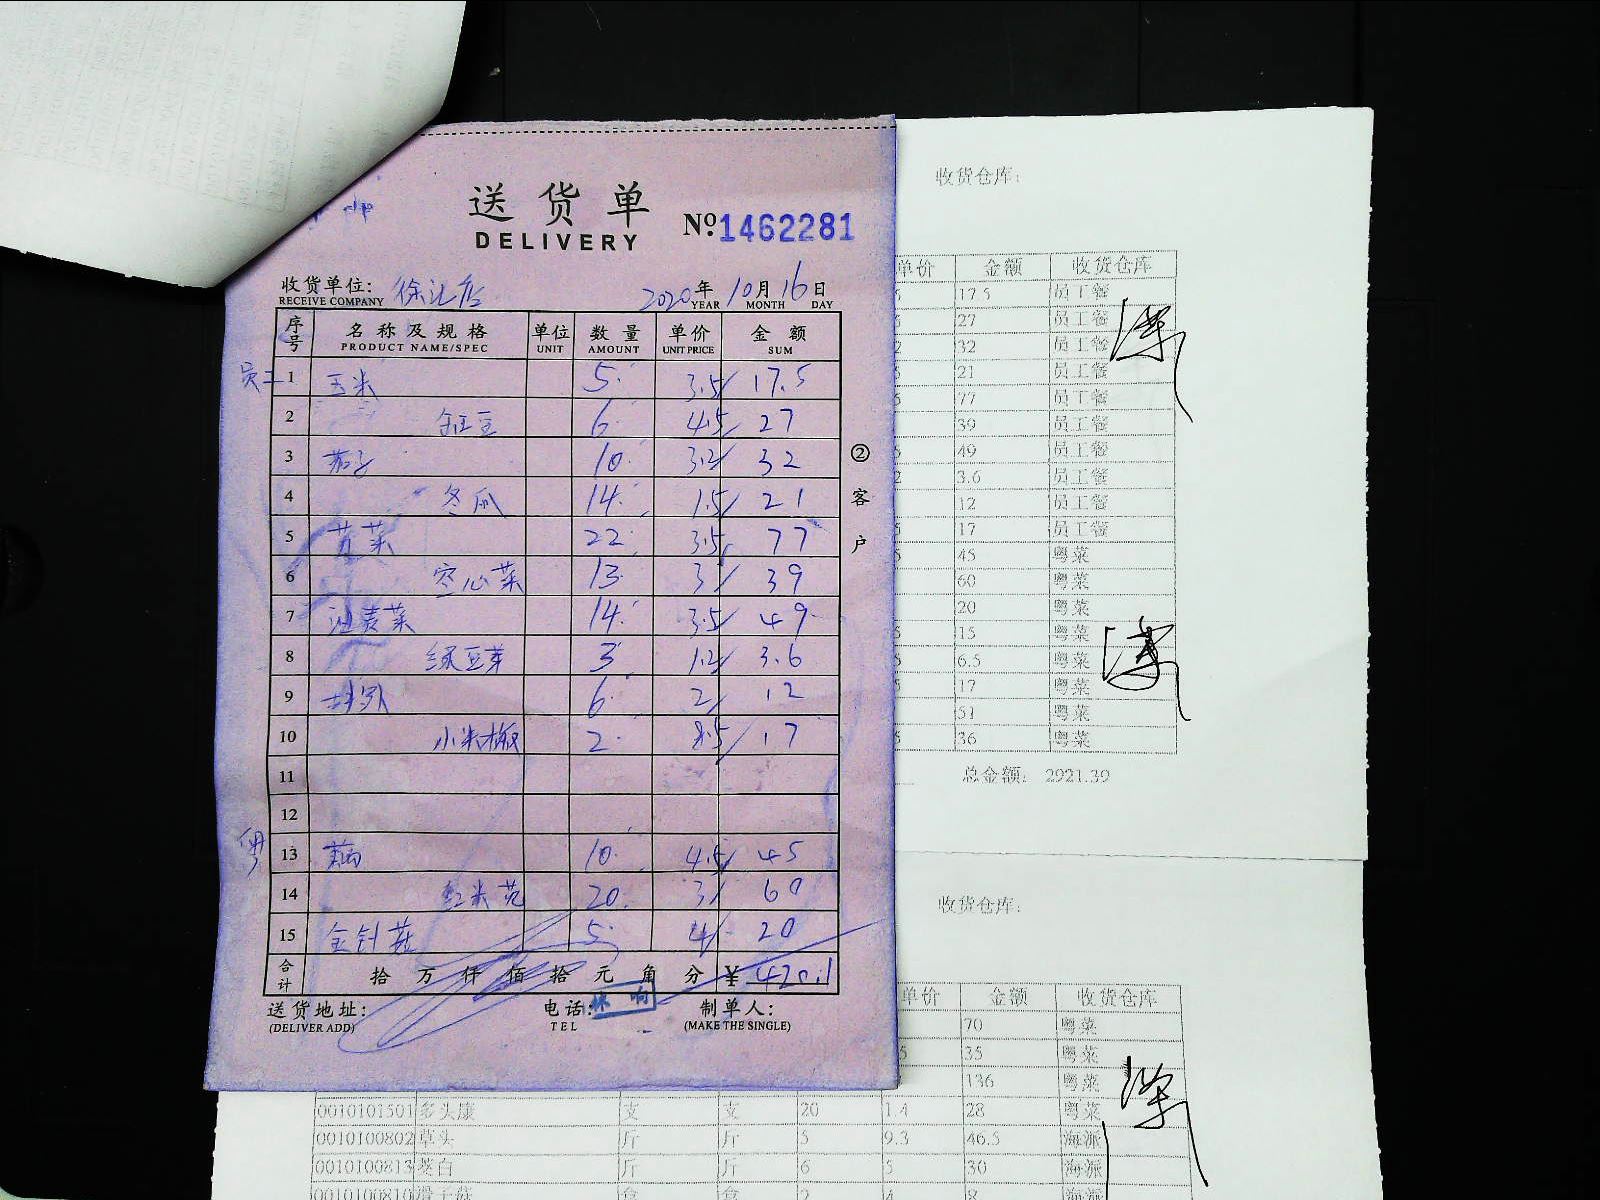 送货单
DELIVERY
No 1462281
收货单位: 徐汇店 2020年10月16日
RECEIVE COMPANY YEAR MONTH DAY
序号 名称及规格 单位 数量 单价 金额
PRODUCT NAME/SPEC UNIT AMOUNT UNIT PRICE SUM
员工 1 玉米 5 3.5 17.5
2 豇豆 6 4.5 27
3 茄子 10 3.2 32
4 冬瓜 14 1.5 21
5 苋菜 22 3.5 77
6 空心菜 13 3 39
7 油麦菜 14 3.5 49
8 绿豆芽 3 1.2 3.6
9 6 2 12
10 小米椒 2 8.5 17
11
12
13 10 4.5 45
14 红米苋 20 3 60
15 金针菇 5 4 20
合计 拾万仟佰拾元角分 ¥ 420.1
送货地址: 电话: 制单人:
(DELIVER ADD) TEL (MAKE THE SINGLE)
②客户
收货仓库:
单价 金额 收货仓库
17.5 员工餐
27 员工餐
32 员工餐
21 员工餐
77 员工餐
39 员工餐
49 员工餐
3.6 员工餐
12 员工餐
17 员工餐
45 粤菜
60 粤菜
20 粤菜
15 粤菜
6.5 粤菜
17 粤菜
51 粤菜
36 粤菜
总金额: 2921.39
收货仓库:
单价 金额 收货仓库
70 粤菜
35 粤菜
136 粤菜
0010101501 多头康 支 支 20 1.4 28 粤菜
0010100802 草头 斤 斤 5 9.3 46.5 海派
0010100813 茭白 斤 斤 6 5 30 海派
0010100810 滑子菇 2 4 8 海派